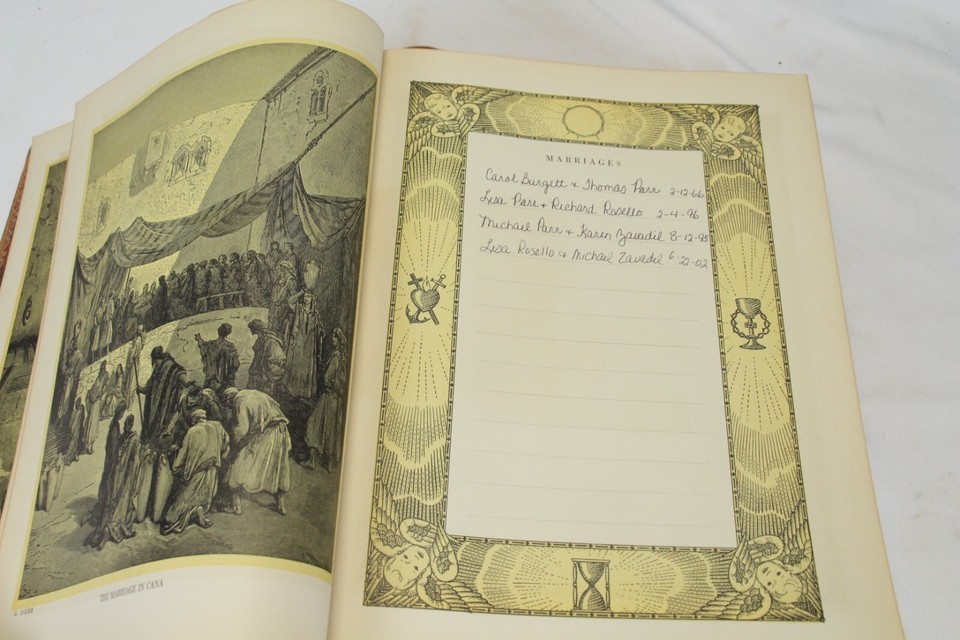 G. DORÉ
THE MARRIAGE IN CANA
MARRIAGES
Carol Burgett & Thomas Parr 2-12-66
Lisa Parr & Richard Rosello 2-4-96
Michael Parr & Karen Zavadil 8-12-95
Lisa Rosello & Michael Zavadil 6-22-02